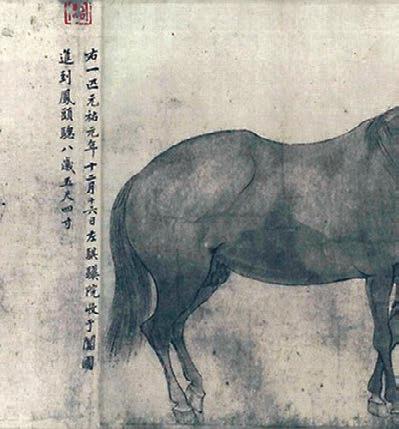 右一匹元祐元年十二月十六日左騏驥院收于闐國
進到鳳頭驄八歲五尺四寸